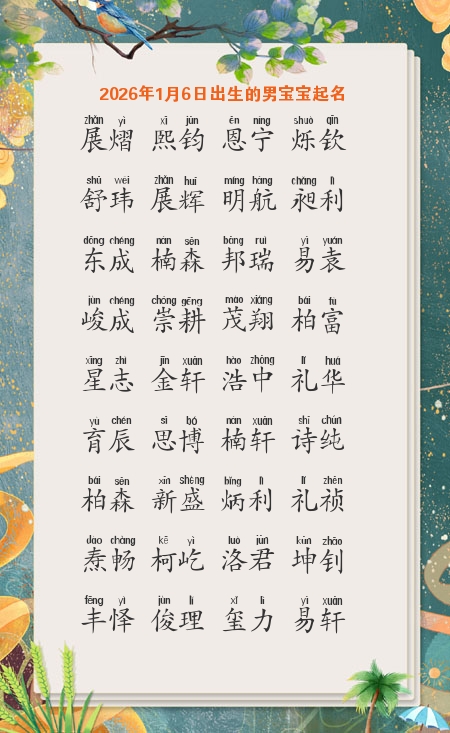 2026年1月6日出生的男宝宝起名
zhǎn yì xī jūn ēn níng shuò qīn
展熠 熙钧 恩宁 烁钦
shū wěi zhǎn huī míng háng chǎng lì
舒玮 展辉 明航 昶利
dōng chéng nán sēn bāng ruì yì yuán
东成 楠森 邦瑞 易袁
jùn chéng chóng gēng mào xiáng bǎi fù
峻成 崇耕 茂翔 柏富
xīng zhì jīn xuān hào zhōng lǐ huá
星志 金轩 浩中 礼华
yù chén sī bó nán xuān shī chún
育辰 思博 楠轩 诗纯
bǎi sēn xīn shèng bǐng lì lǐ zhēn
柏森 新盛 炳利 礼祯
dào chàng kē yì luò jūn kūn zhāo
焘畅 柯屹 洛君 坤钊
fēng yì jùn lǐ xǐ lì yì xuān
丰怿 俊理 玺力 易轩